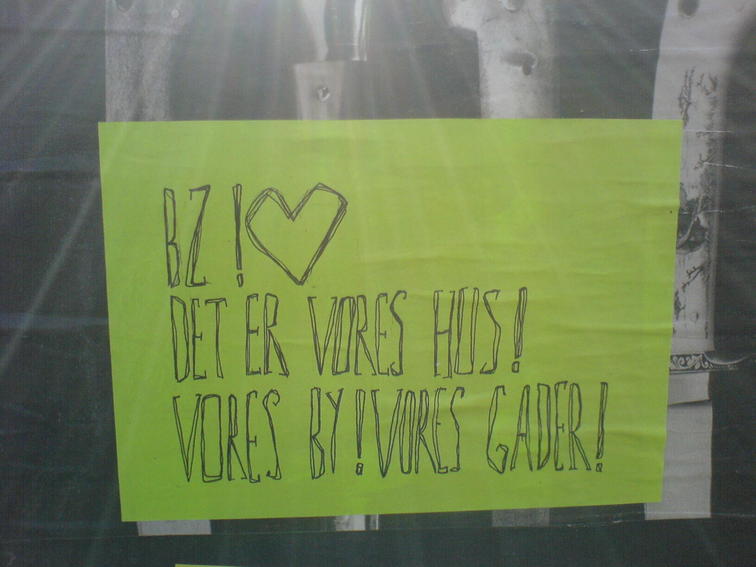 BZ! ♡
DET ER VORES HUS!
VORES BY! VORES GADER!